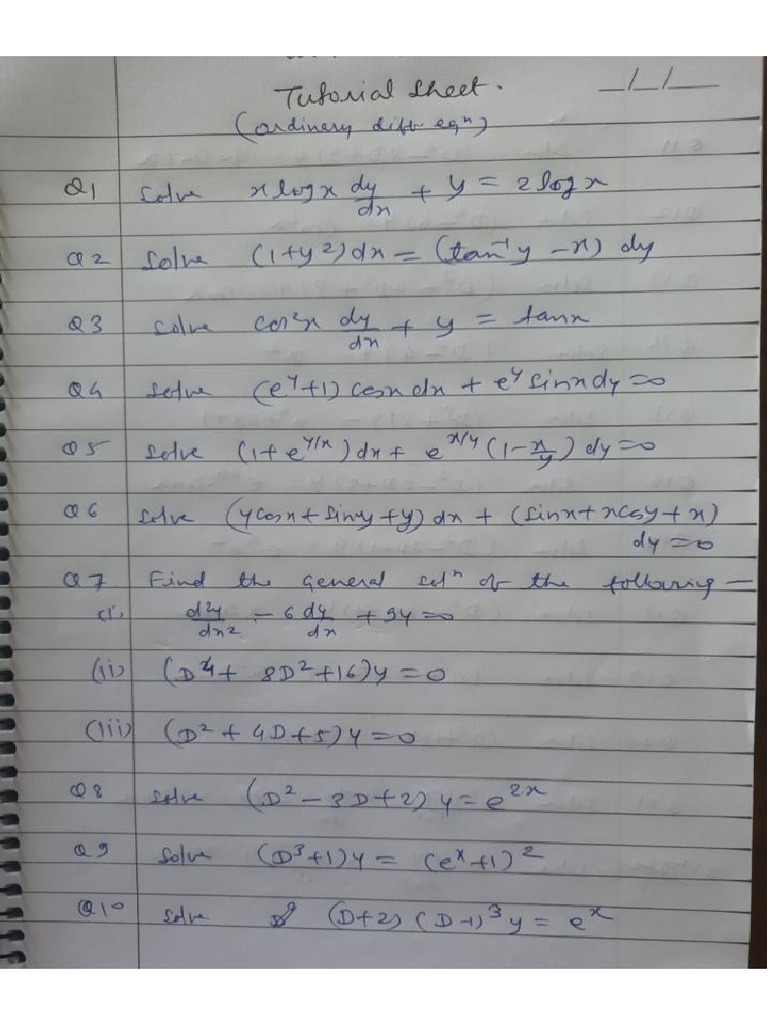 Tutorial Sheet.
_/_/_
(ordinary diffn eqn)
Q1 Solve x log x dy/dx + y = 2 log x
Q2 Solve (1+y²) dx = (tan⁻¹y - x) dy
Q3 Solve cos²x dy/dx + y = tanx
Q4 Solve (e^y+1) cosx dx + e^y sinx dy = 0
Q5 Solve (1+e^y/x) dx + e^x/y (1 - x/y) dy = 0
Q6 Solve (y cosx + siny + y) dx + (sinx + x cosy + x)
dy = 0
Q7 Find the general solⁿ of the following -
(i) d²y/dx² - 6 dy/dx + 9y = 0
(ii) (D⁴ + 8D² + 16) y = 0
(iii) (D² + 4D + 5) y = 0
Q8 Solve (D² - 3D + 2) y = e^2x
Q9 Solve (D³+1) y = (e^x + 1)²
Q10 Solve (D+2) (D-1)³ y = e^x